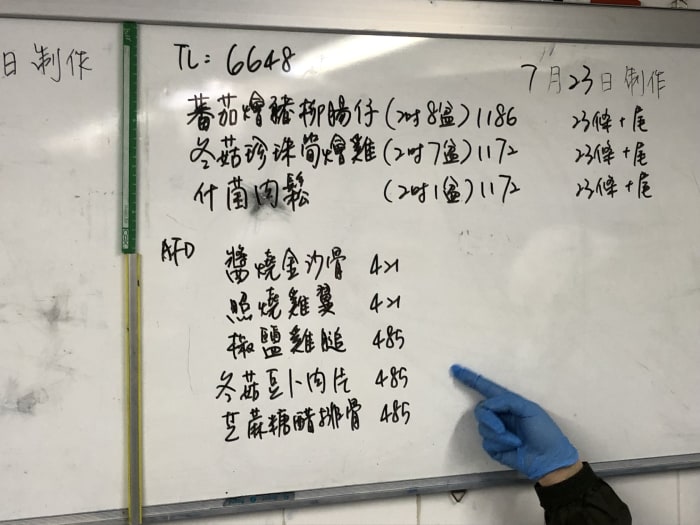 日制作
TL: 6648
7月23日制作
蕃茄燴豬柳腸仔(2吋8盆)1186 23條+尾
冬菇珍珠筍燴雞(2吋7盆)1172 23條+尾
什菌肉鬆 (2吋1盆)1172 23條+尾
AFD
醬燒金沙骨 421
照燒雞翼 421
椒鹽雞腿 485
冬菇豆卜肉片 485
芝蔴糖醋排骨 485